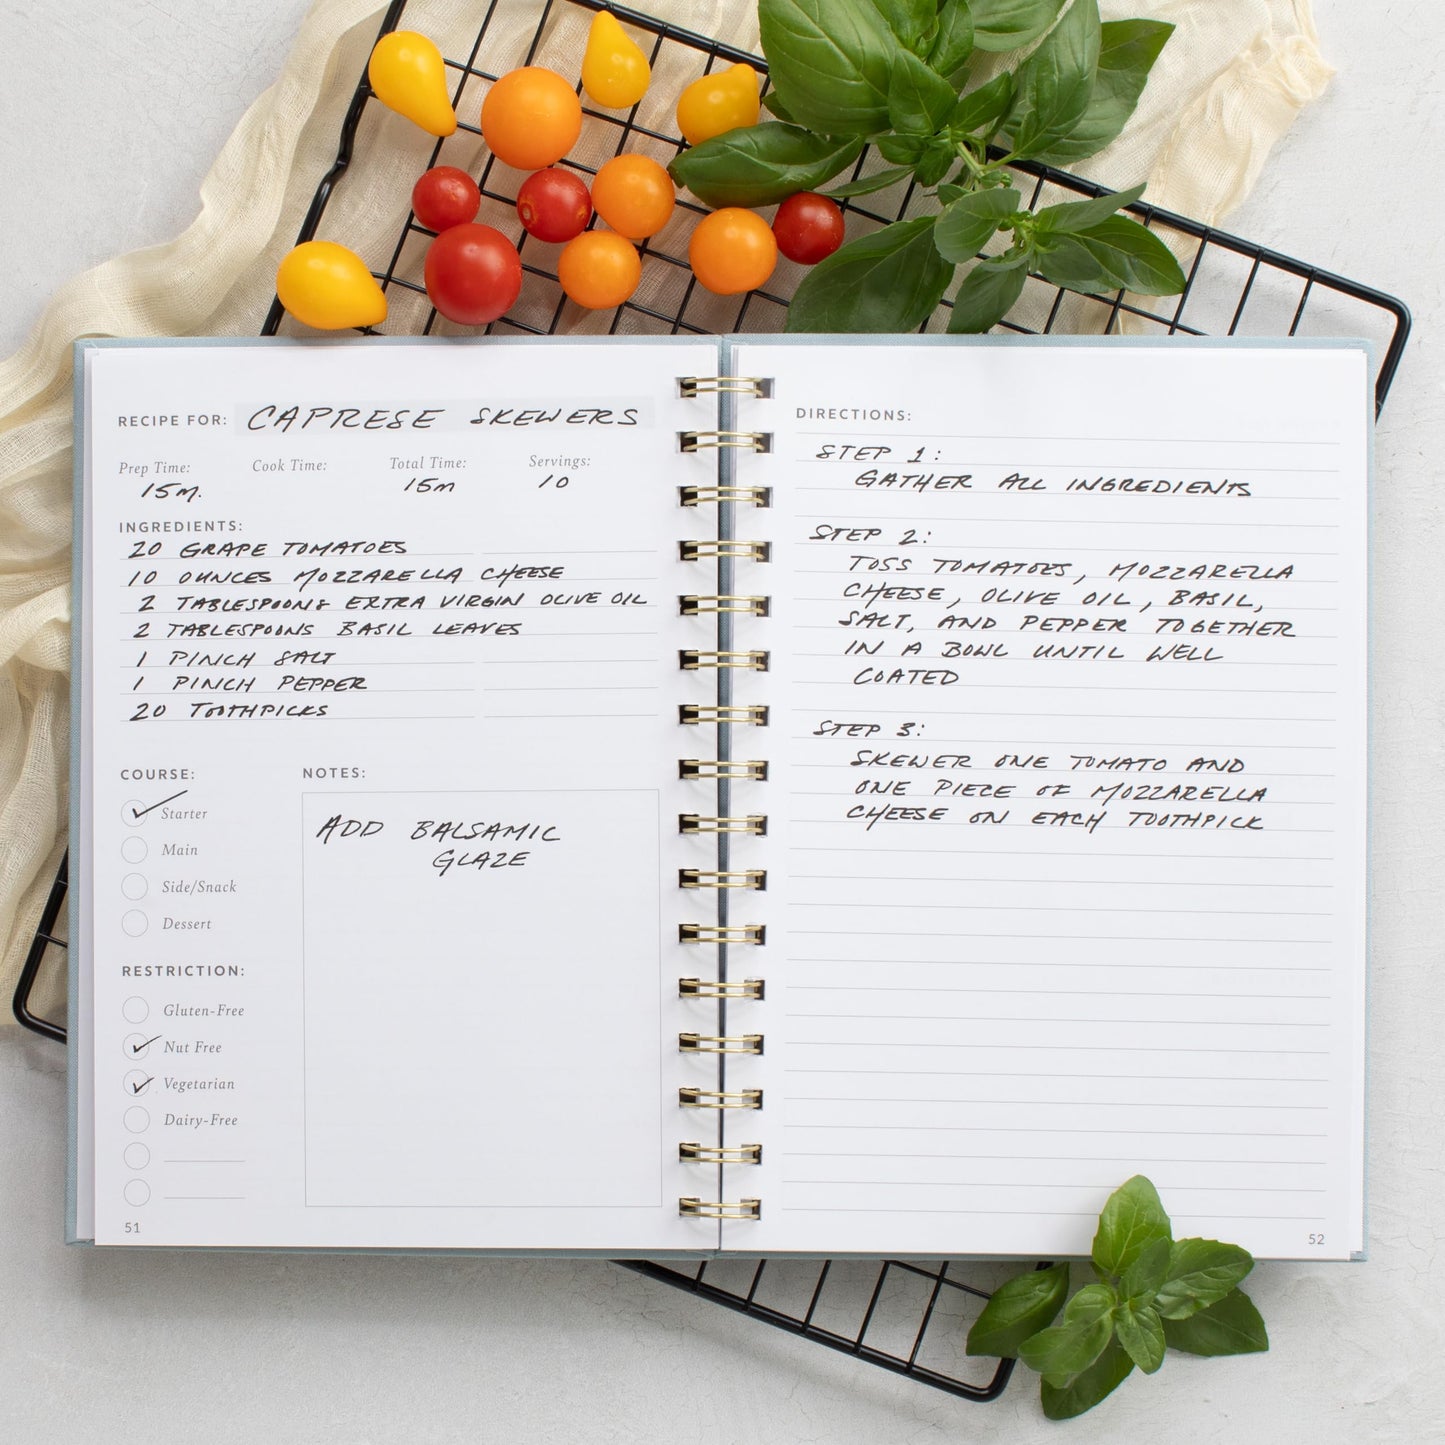 RECIPE FOR: CAPRESE SKEWERS
Prep Time: Cook Time: Total Time: Servings:
15m. 15m 10
INGREDIENTS:
20 GRAPE TOMATOES
10 OUNCES MOZZARELLA CHEESE
2 TABLESPOONS EXTRA VIRGIN OLIVE OIL
2 TABLESPOONS BASIL LEAVES
1 PINCH SALT
1 PINCH PEPPER
20 TOOTHPICKS
COURSE:
Starter
Main
Side/Snack
Dessert
RESTRICTION:
Gluten-Free
Nut Free
Vegetarian
Dairy-Free
NOTES:
ADD BALSAMIC
GLAZE
51
DIRECTIONS:
STEP 1:
GATHER ALL INGREDIENTS
STEP 2:
TOSS TOMATOES, MOZZARELLA
CHEESE, OLIVE OIL, BASIL,
SALT, AND PEPPER TOGETHER
IN A BOWL UNTIL WELL
COATED
STEP 3:
SKEWER ONE TOMATO AND
ONE PIECE OF MOZZARELLA
CHEESE ON EACH TOOTHPICK
52